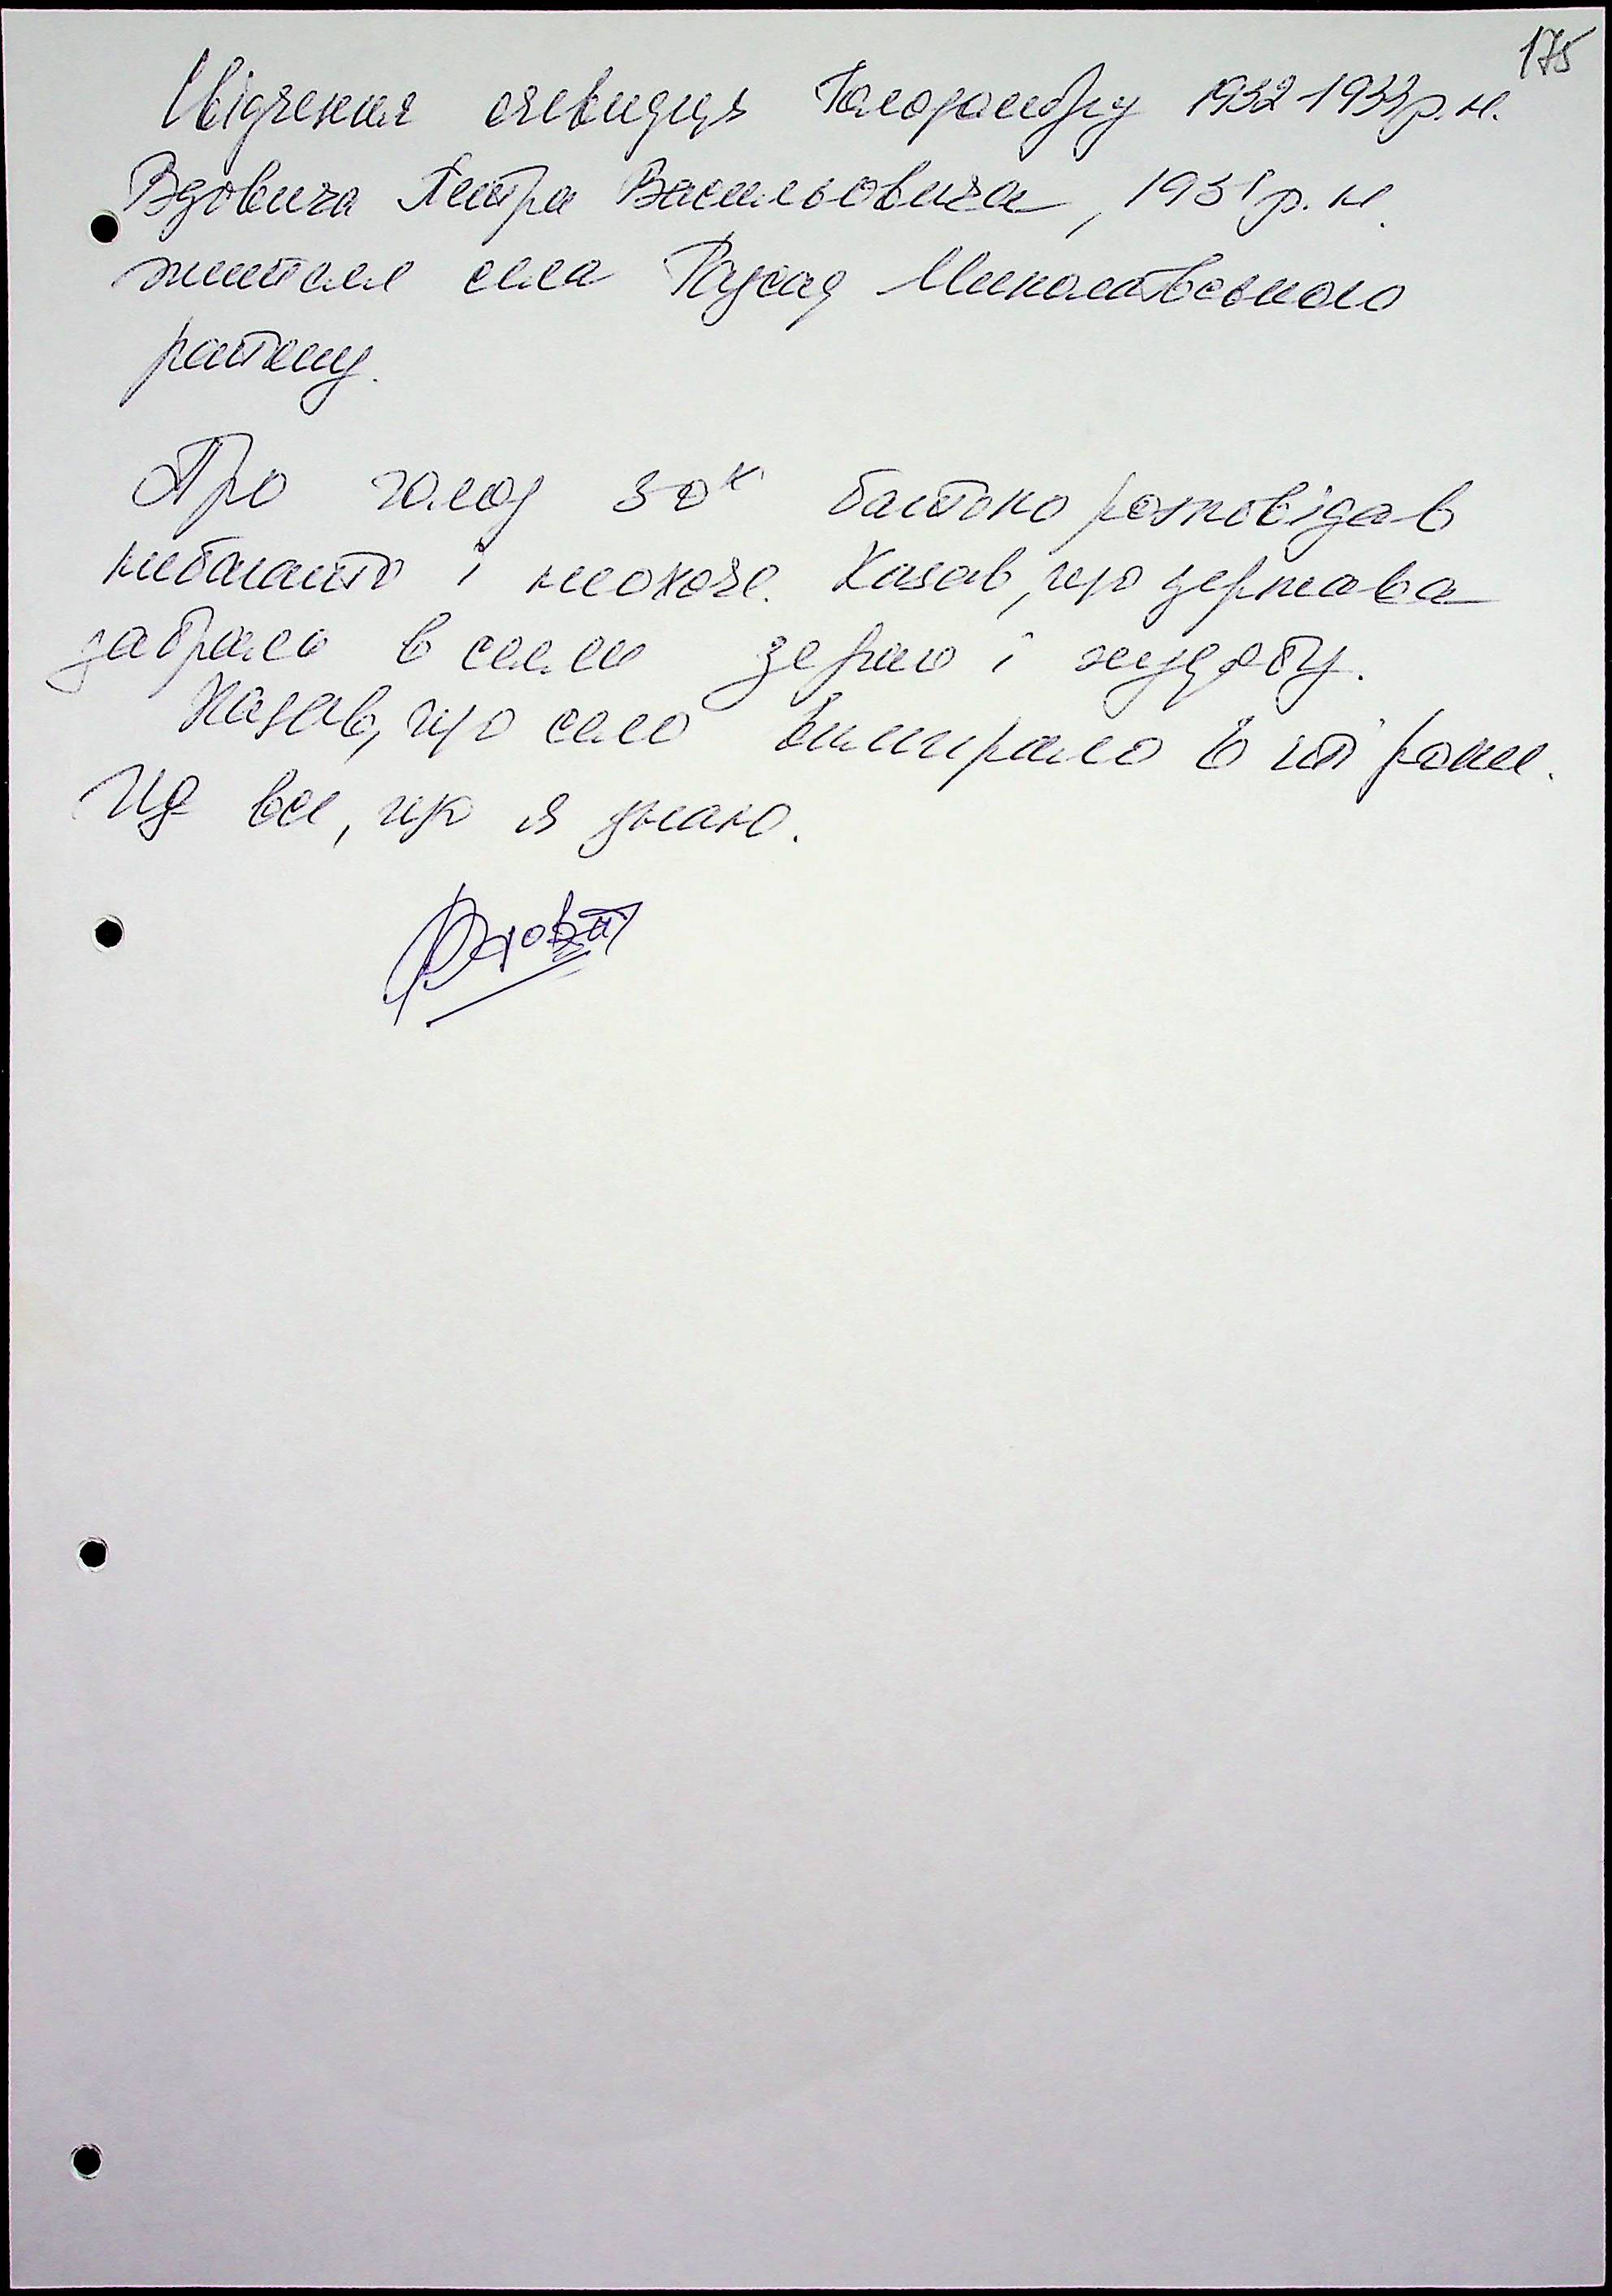 175
Свідчення очевидця Голодомору 1932-1933р.н.
Вдовича Петра Васильовича, 1931р.н.
жителя села Радсад Миколаївського
району.
Про голод 30х батько розповідав
небагато і неохоче. Казав, що держава
забрала в селі зерно і худобу.
Казав, що село вимирало в ті роки.
Це все, що я знаю.